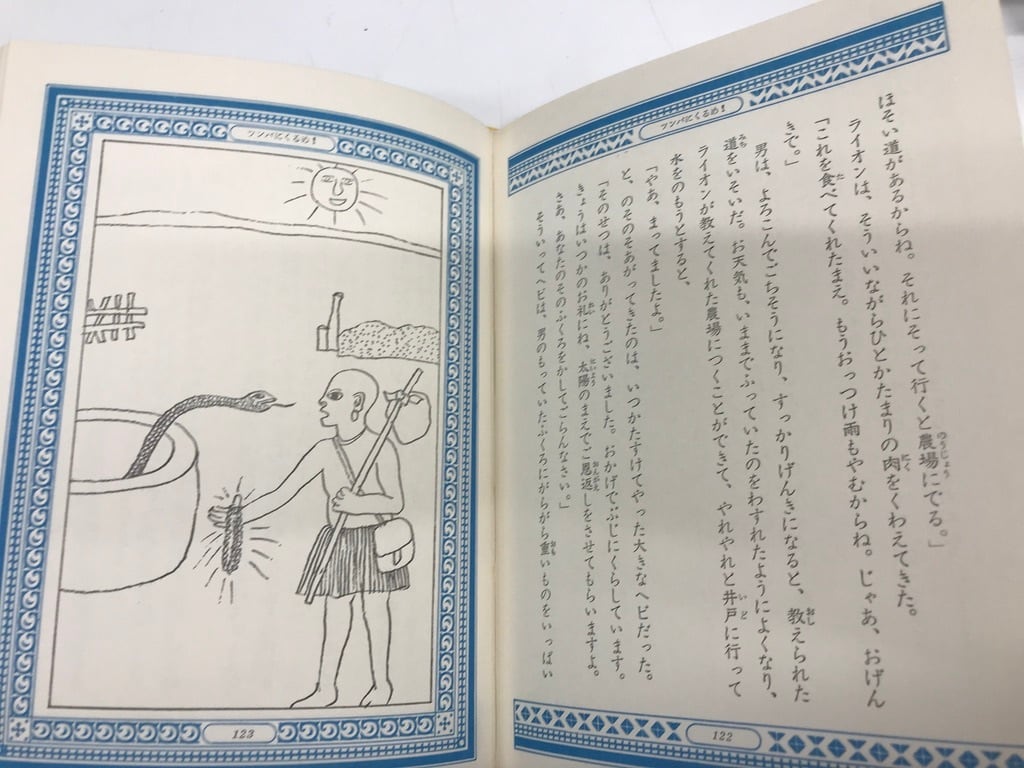 ツンバにくるめ!
ほそい道があるからね。それにそって行くと農場にでる。」
ライオンは、そういいながらひとかたまりの肉をくわえてきた。
「これを食べてくれたまえ。もうおっつけ雨もやむからね。じゃあ、おげん
きで。」
男は、よろこんでごちそうになり、すっかりげんきになると、教えられた
道をいそいだ。お天気も、いままでふっていたのをわすれたようによくなり、
ライオンが教えてくれた農場につくことができて、やれやれと井戸に行って
水をのもうとすると、
「やあ、まってましたよ。」
と、のそのそあがってきたのは、いつかたすけてやった大きなヘビだった。
「そのせつは、ありがとうございました。おかげでぶじにくらしています。
きょうはいつかのお礼にね、太陽のまえでご恩返しをさせてもらいますよ。
さあ、あなたのそのふくろをかしてごらんなさい。」
そういってヘビは、男のもっていたふくろにがらがら重いものをいっぱい
122
ツンバにくるめ!
123